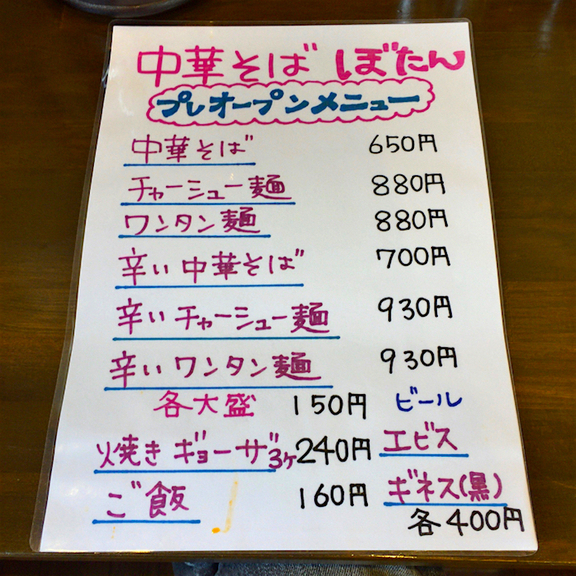 中華そば ぼたん
プレオープンメニュー
中華そば 650円
チャーシュー麺 880円
ワンタン麺 880円
辛い中華そば 700円
辛いチャーシュー麺 930円
辛いワンタン麺 930円
各大盛 150円 ビール
焼きギョーザ3ヶ 240円 エビス
ご飯 160円 ギネス(黒)
各400円